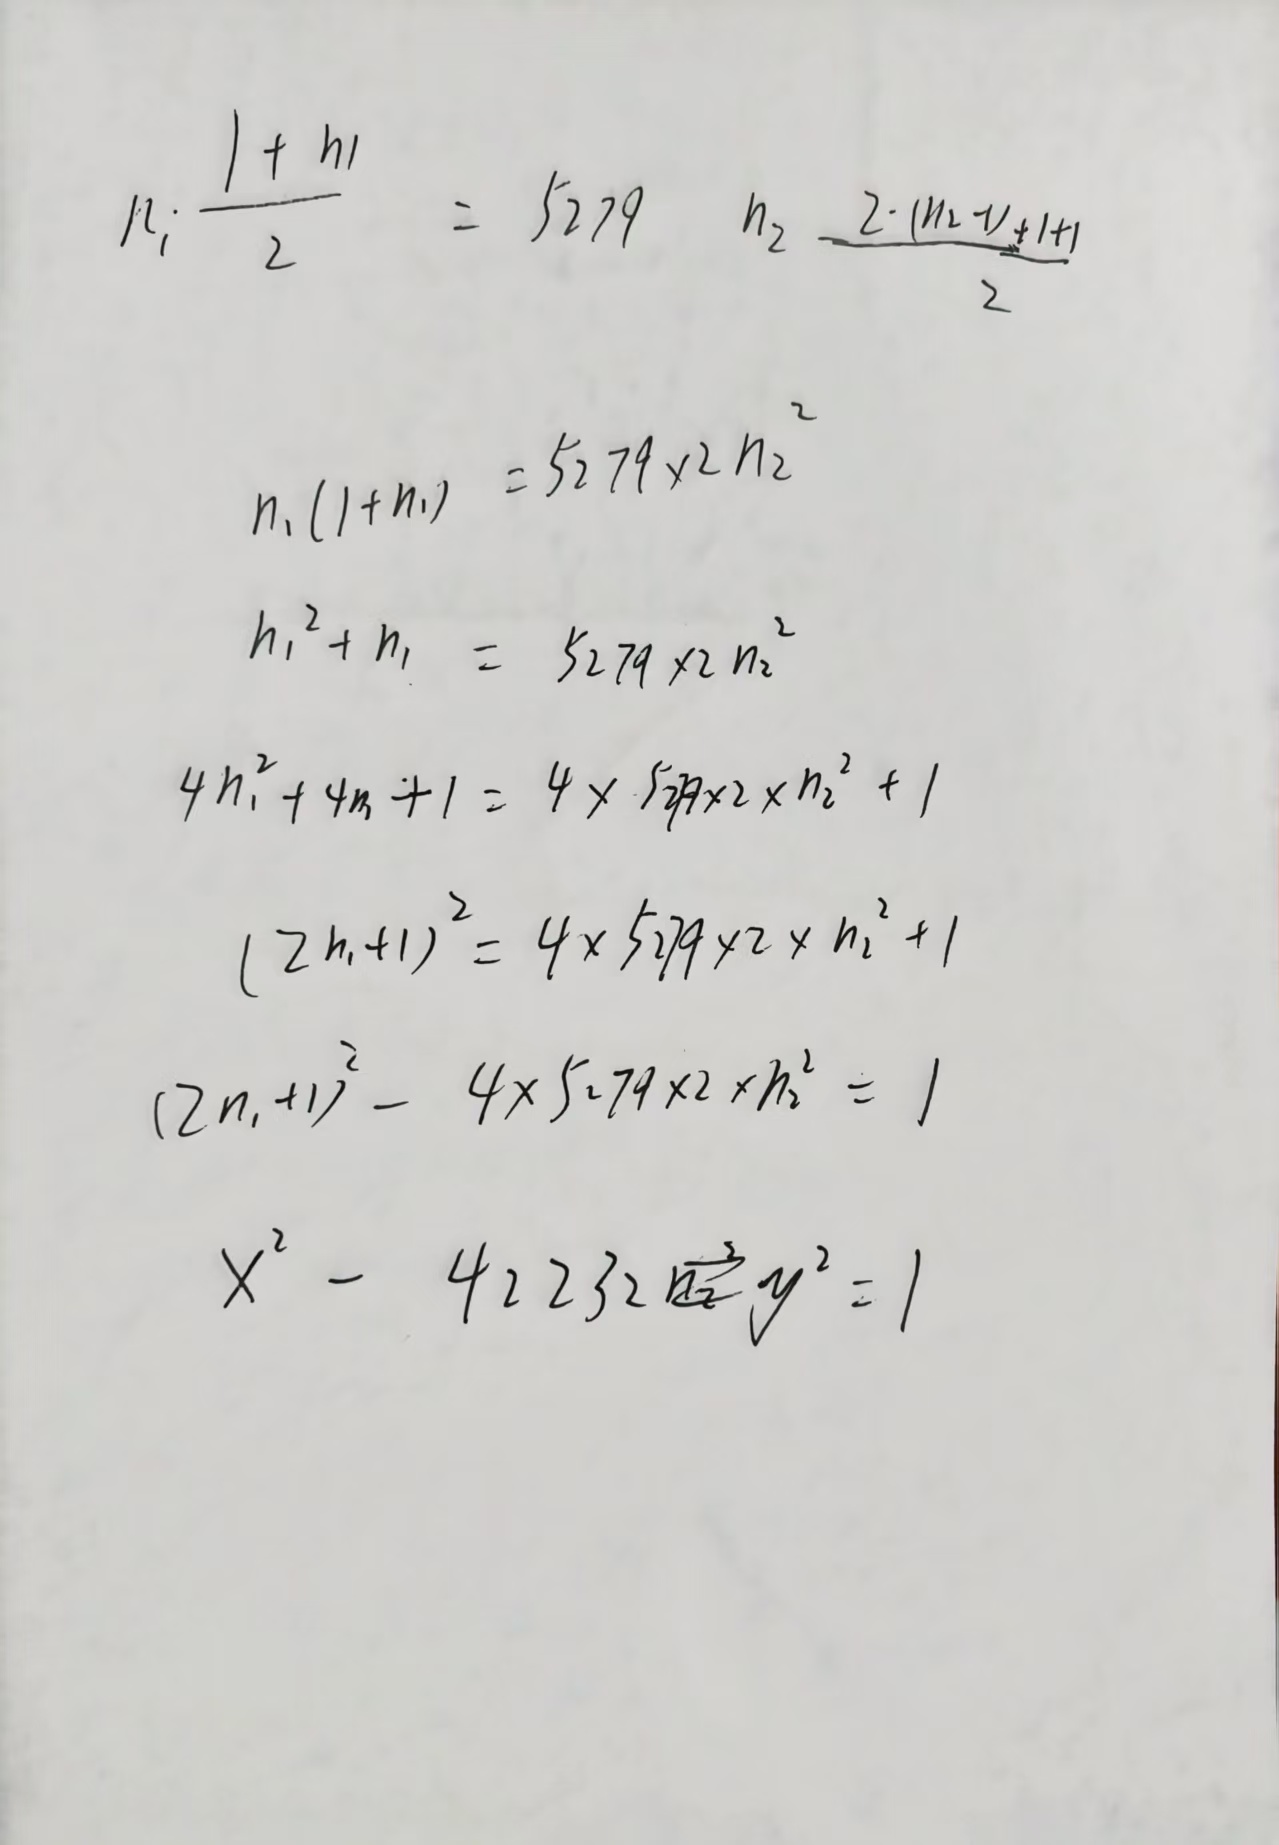 n₁ (1+n1)/2 = 5279 n₂ (2·(n₂-1)+1+1)/2
n₁(1+n₁) = 5279×2n₂²
n₁²+n₁ = 5279×2n₂²
4n₁²+4n₁+1 = 4×5279×2×n₂²+1
(2n₁+1)² = 4×5279×2×n₂²+1
(2n₁+1)² - 4×5279×2×n₂² = 1
x² - 42232y² = 1